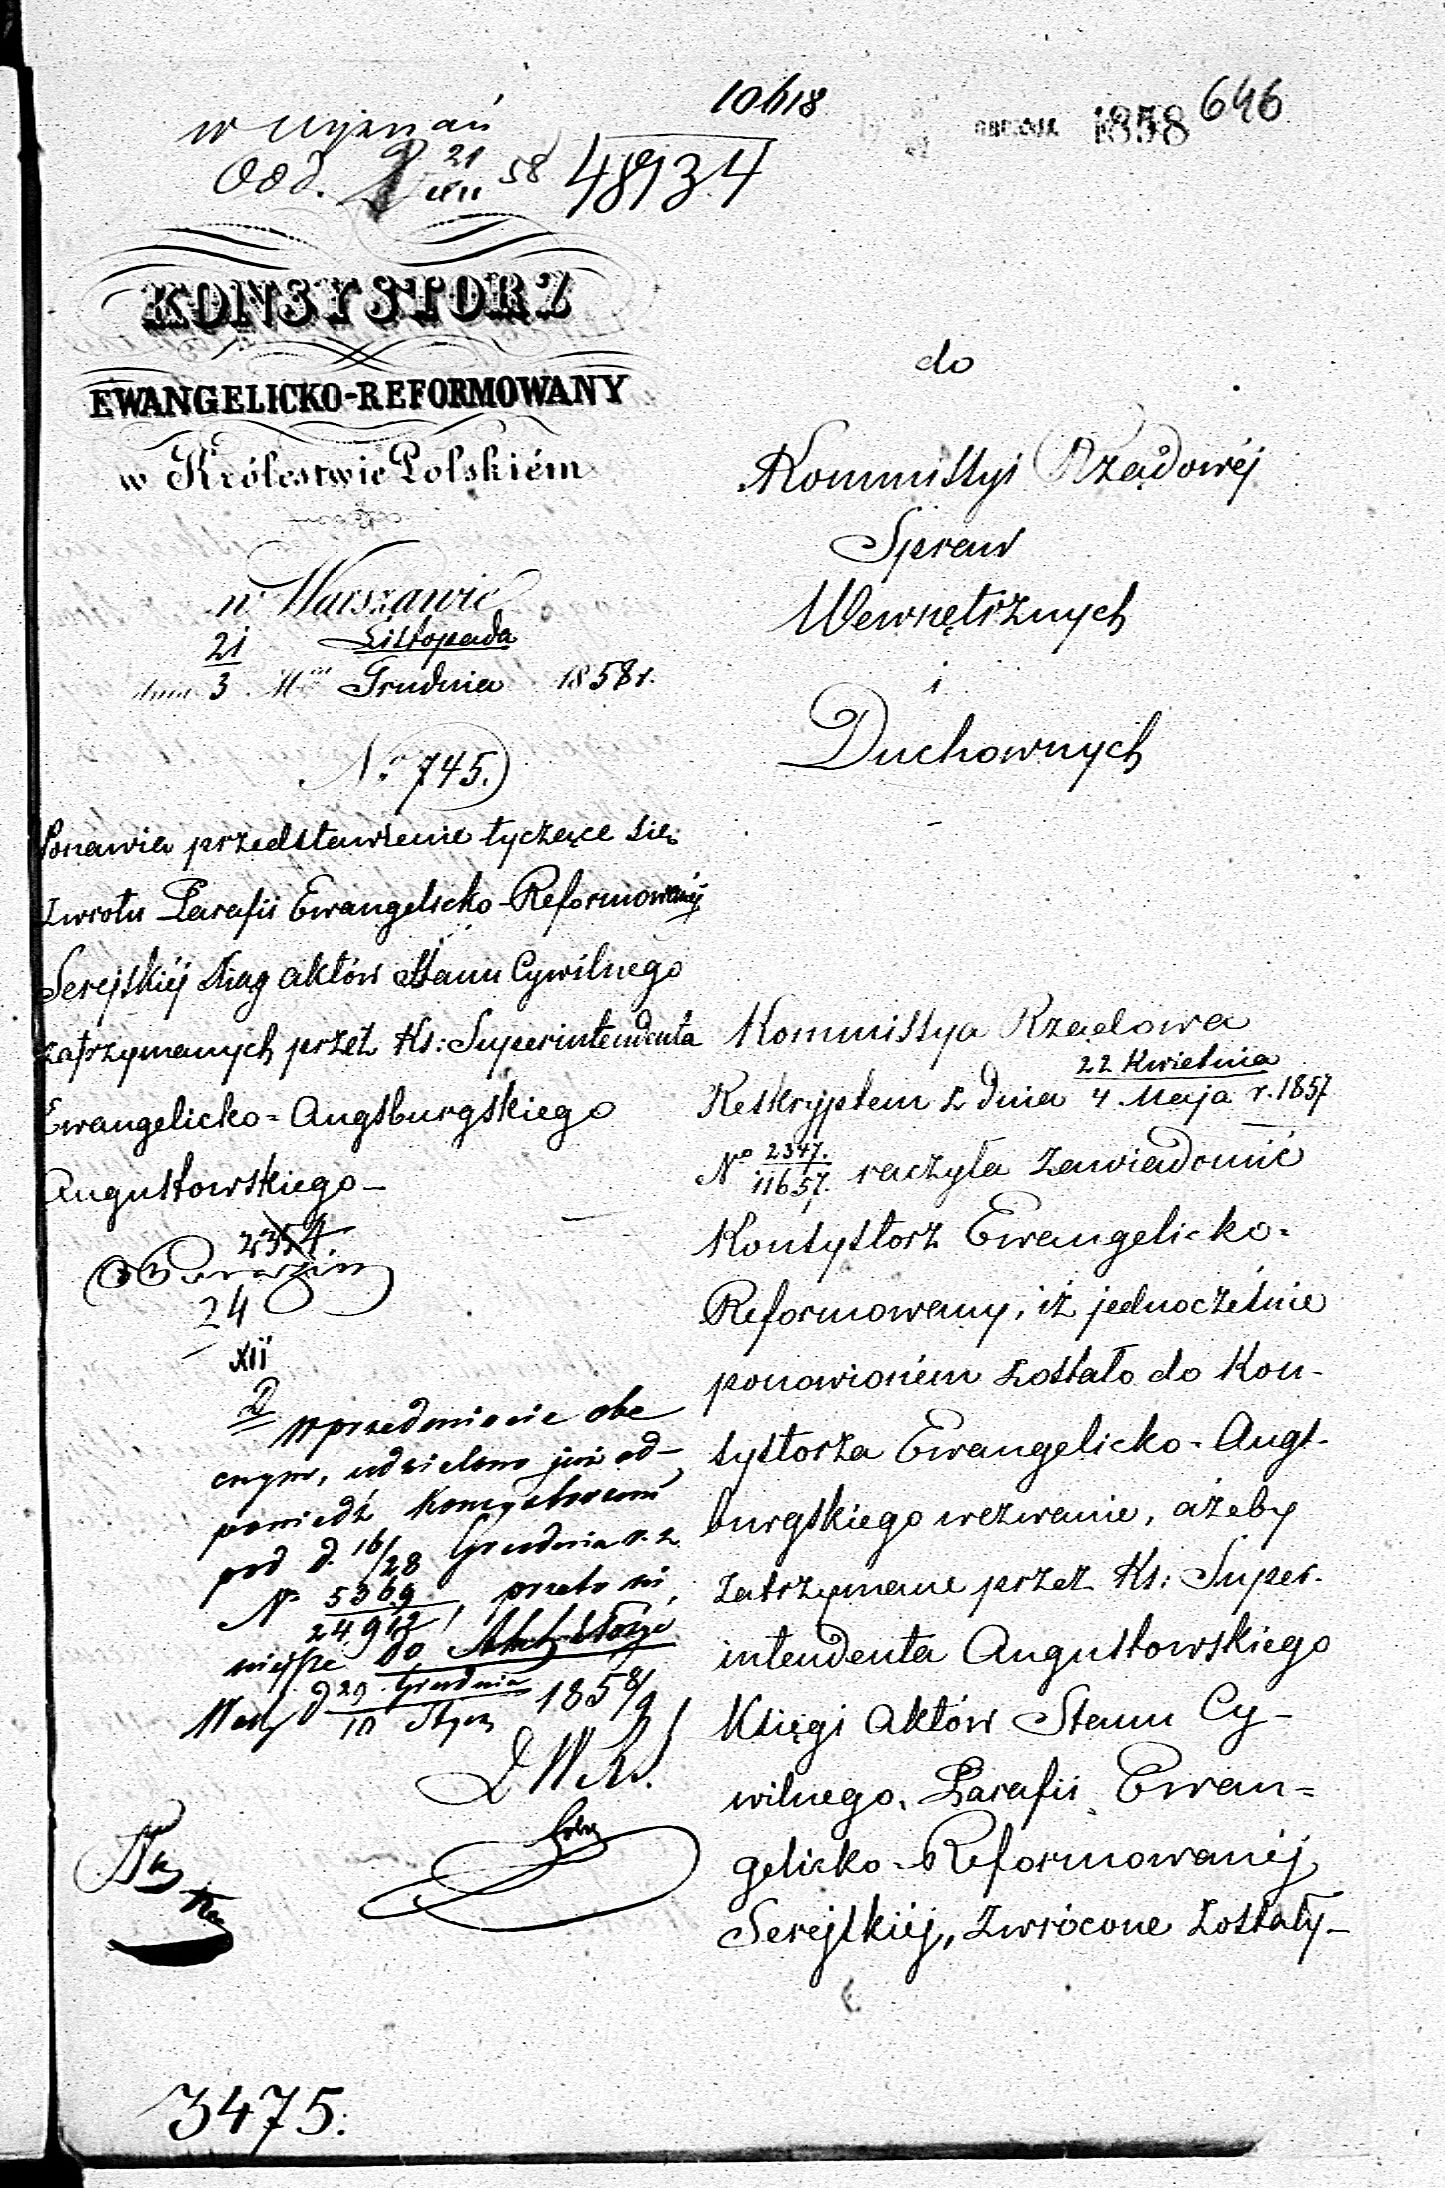 10618
646
1858
w Wyznań
Odd. 21 58
48134
KONSYSTORZ
EWANGELICKO-REFORMOWANY
w Królestwie Polskiém
w Warszawie
21 Listopada
dnia 3 Grudnia 1858 r.
No 745.
Ponawia przedstawienie tyczące się
zwrotu Parafii Ewangelicko-Reformowanéj
Serejskiéj Xiąg Aktów Stanu Cywilnego
zatrzymanych przez Ks: Superintendenta
Ewangelicko-Augsburgskiego
Augustowskiego
2354.
24
XII
W przedmiocie obe
cnym, udzielono już od-
powiedź Konsystorzowi
pod d. 16/28 Grudnia r. z.
No 5369
24,912, przeto ni
niejsze do Akt złożyć
d 29 Grudnia
10 Stycz 1858/9
do
Kommissyi Rządowéj
Spraw
Wewnętrznych
i
Duchownych
Kommissya Rządowa
22 Kwietnia
Reskryptem z dnia 4 Maja r. 1857
No 2347.
11657. raczyła zawiadomić
Konsystorz Ewangelicko-
Reformowany, iż jednocześnie
ponowioném zostało do Kon-
systorza Ewangelicko-Augs-
burgskiego wezwanie, ażeby
zatrzymane przez Ks: Super-
intendenta Augustowskiego
Księgi Aktów Stanu Cy-
wilnego, Parafii Ewan-
gelicko-Reformowanéj
Serejskiéj, zwrócone zostały
3475.